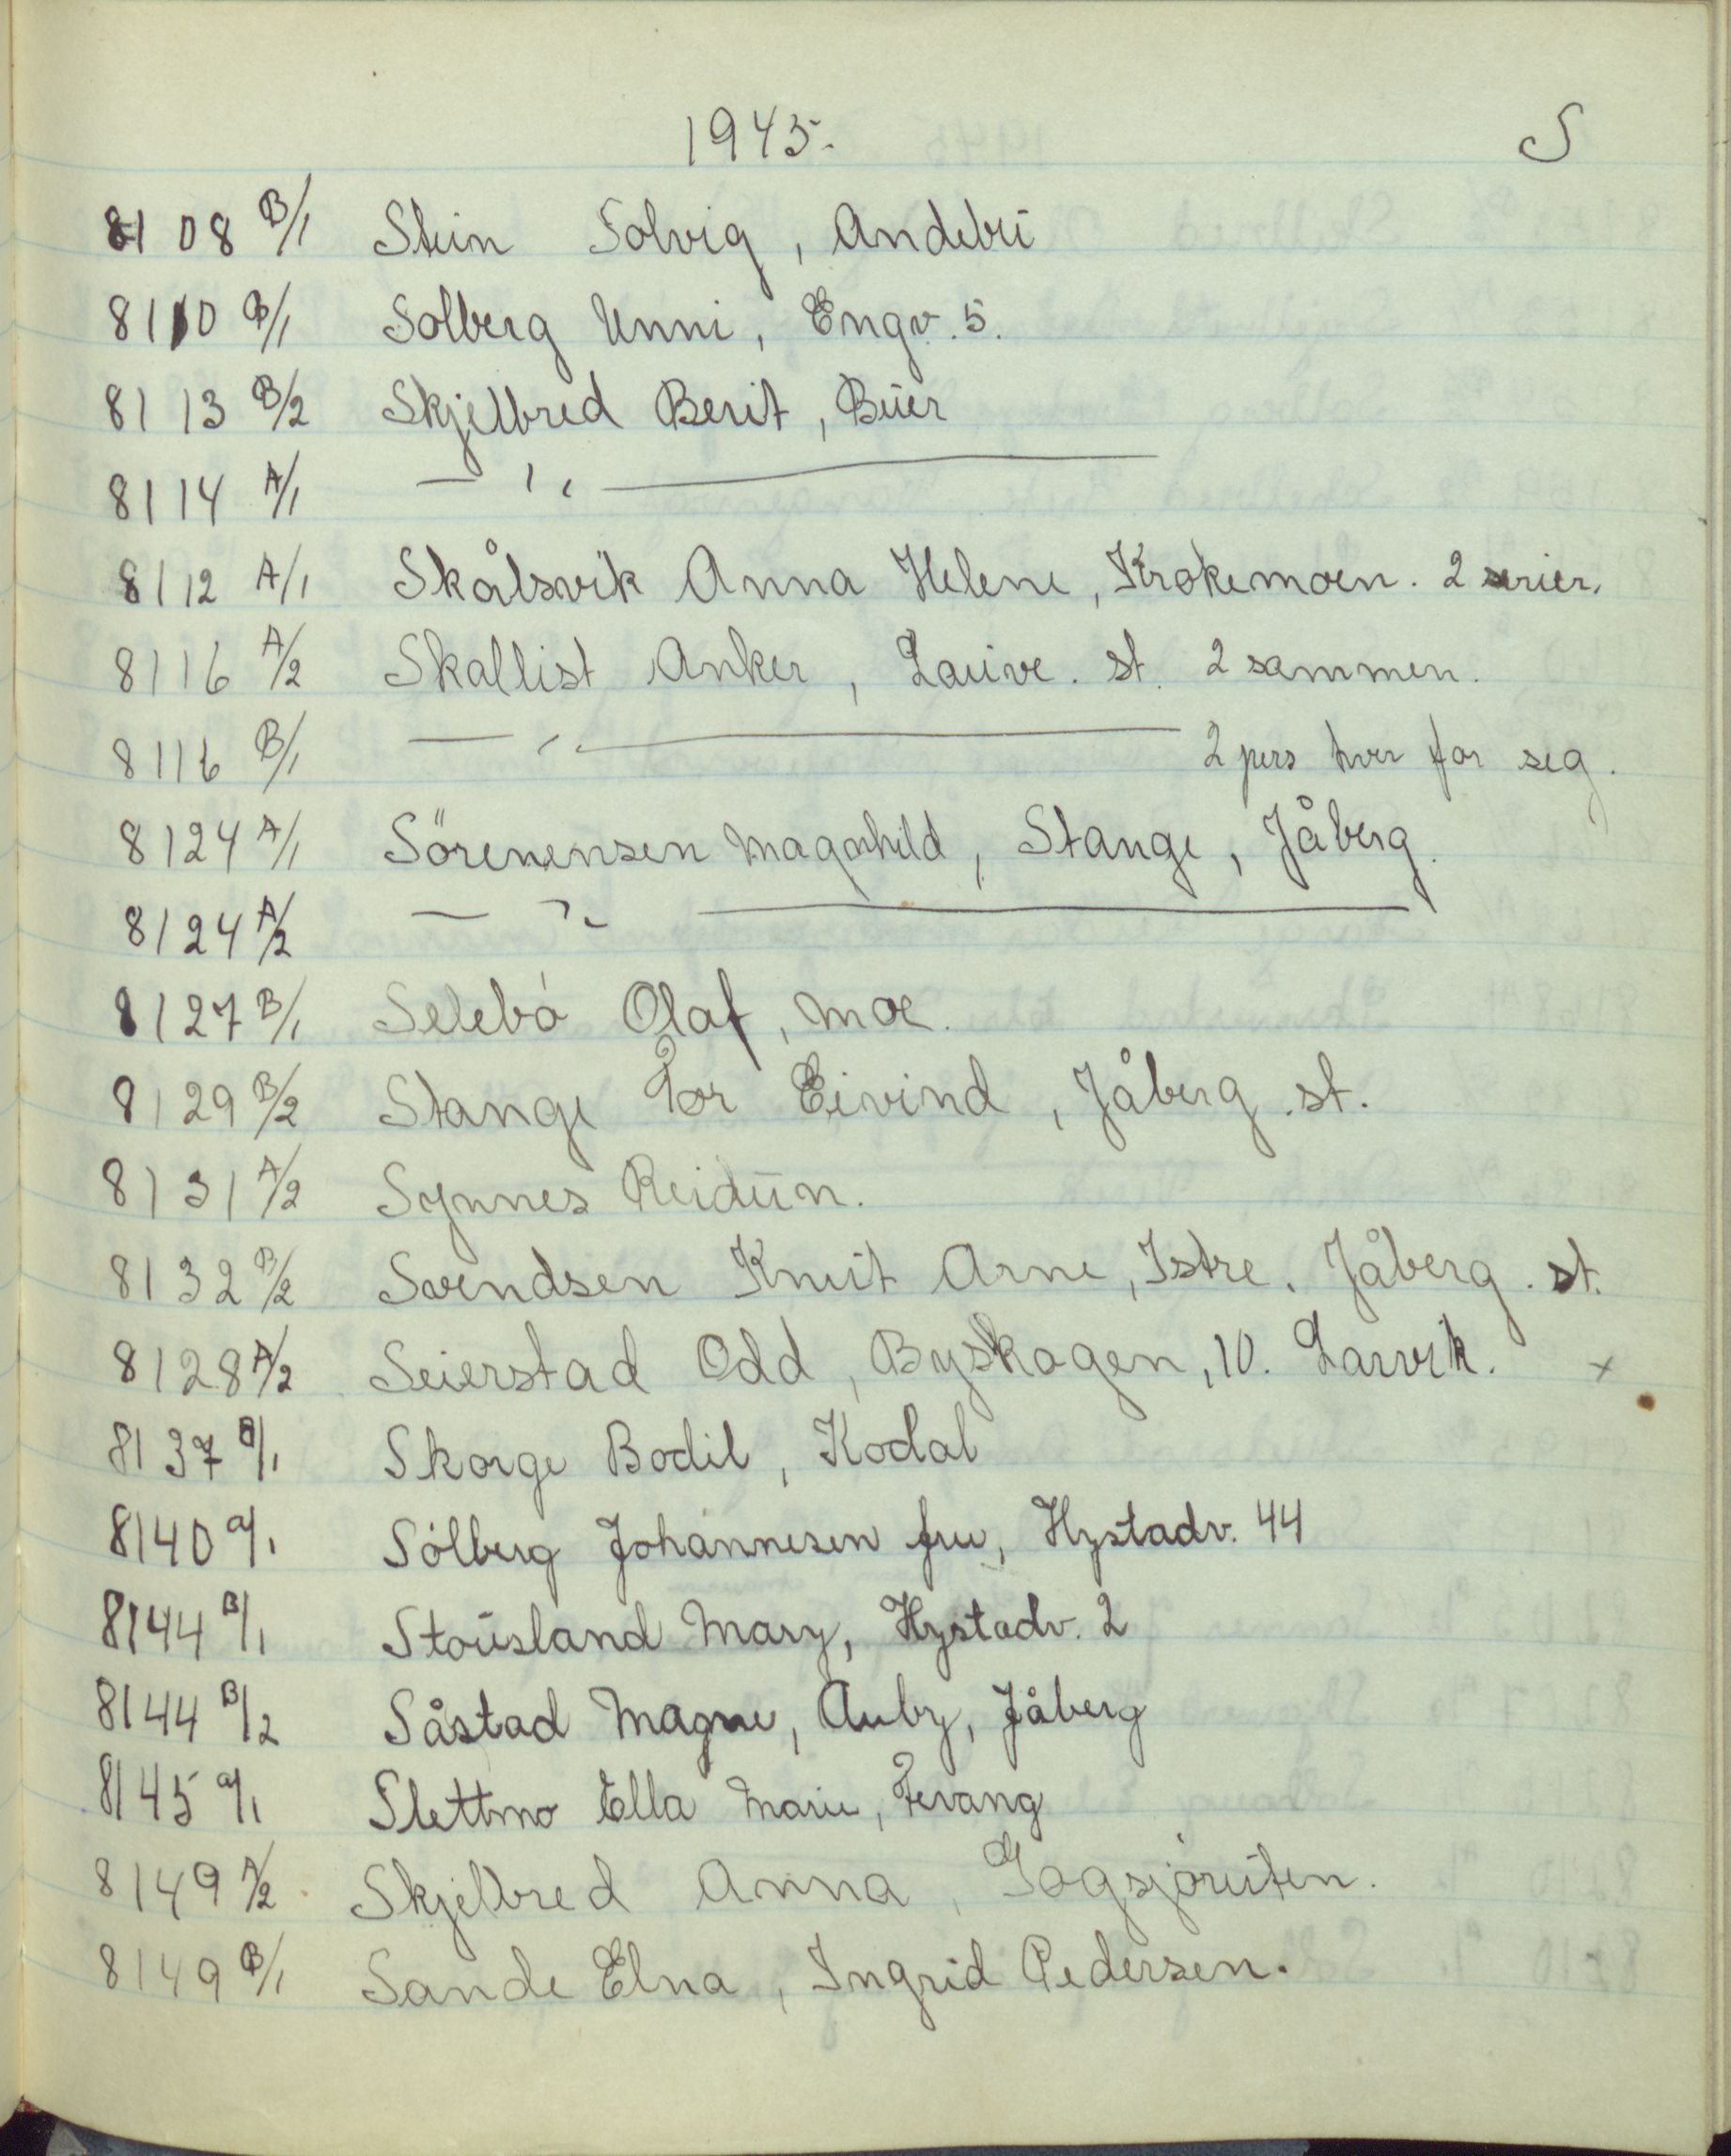 1945. S
8108 B/1 Stein Solvig, Andebu
8110 B/1 Solberg Unni, Engv. 5.
8113 B/2 Skjelbred Berit, Buer
8114 A/1 — " —
8112 A/1 Skålsvik Anna Helene, Krokemoen. 2 serier.
8116 A/2 Skallist Anker, Lauve. st. 2 sammen.
8116 B/1 — " — 2 pers hver for seg.
8124 A/1 Sörenensen Magnhild, Stange, Jåberg.
8124 A/2 — " —
8127 B/1 Selebó Olaf, Moe.
8129 B/2 Stange Tor Eivind, Jåberg. st.
8131 A/2 Synnes Reidun.
8132 B/2 Svendsen Knut Arne, Istre. Jåberg. st.
8128 A/2 Seierstad Odd, Byskogen, 10. Larvik. x
8137 B/1 Skorge Bodil, Kodal
8140 a/1 Sólberg Johannesen fru, Hystadv. 44
8144 B/1 Stousland Mary, Hystadv. 2
8144 B/2 Såstad Magne, Auby, Jåberg
8145 a/1 Slettmo Ella Marie, Fevang
8149 A/2 Skjelbred Anna, Gogsjóruten.
8149 B/1 Sande Elna, Ingrid Pedersen.